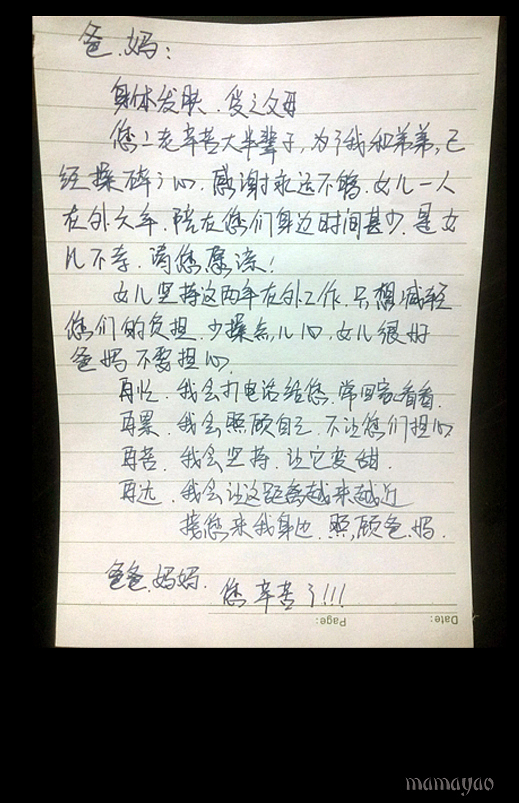 爸.妈：
身体发肤.受之父母
您二老辛苦大半辈子，为了我和弟弟，已
经操碎了心.感谢永远不够.女儿一人
在外六年.陪在您们身边时间甚少.是女
儿不孝.请您原谅！
女儿坚持这两年在外工作.只想减轻
您们的负担.少操点儿心.女儿很好
爸妈不要担心.
再忙.我会打电话给您.常回家看看.
再累.我会照顾自己.不让您们担心
再苦.我会坚持.让它变甜.
再远.我会让这距离越来越近
接您来我身边.照顾爸.妈.
爸爸.妈妈.
您辛苦了!!!
Date:
Page:
mamayao